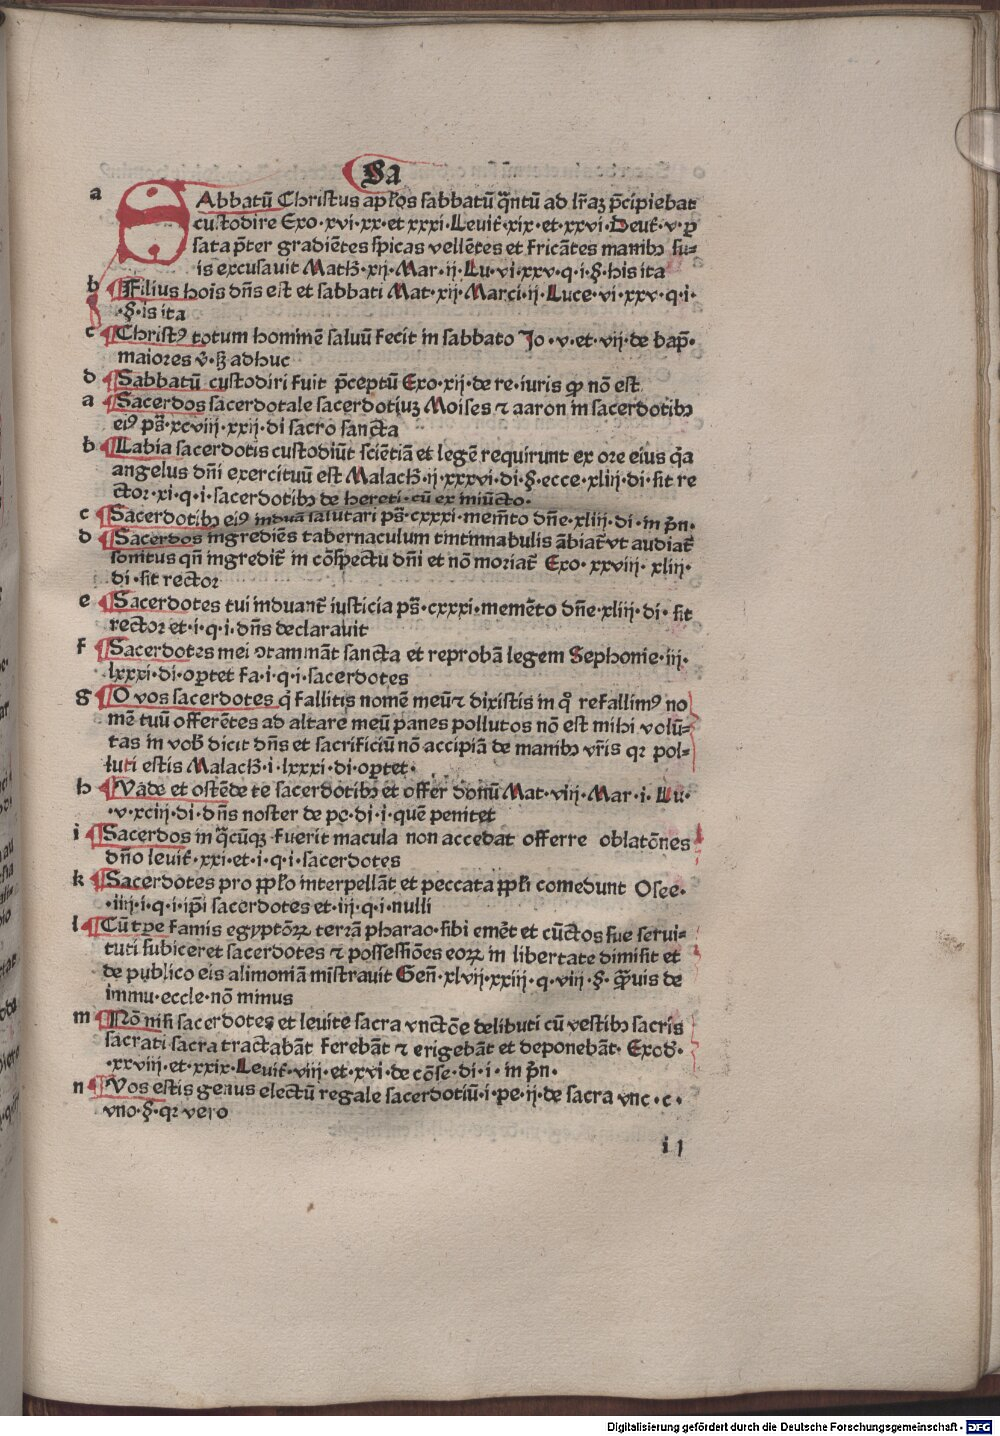 Sa
a SAbbatū Christus aplos sabbatū q̄ntū ad lr̄aꝫ p̄cipiebat
custodire Exo·xvi·xx·et xxxi·Leuit̄·xix·et·xxvi·Deut̄·v·ꝑ
sata p̄ter gradiētes spicas vellētes et fricātes manibꝫ su⸗
is excusauit Matħ·xij·Mar·ij·Lu·vi·xxv·q·i·§·his ita
b ¶Filius hoīs dn̄s est et sabbati Mat·xij·Marci·ij·Luce·vi·xxv·q·i·
·§·is ita
c ¶Christꝰ totum hominē saluū fecit in sabbato Jo·v·et·vij·de bap̄·
maiores v̄·ſꝫ adhuc
d ¶Sabbatū custodiri fuit p̄ceptū Exo·xij·de re·iuris ꝙ nō est
a ¶Sacerdos sacerdotale sacerdotiuꝫ Moises ⁊ aaron in sacerdotibꝫ
eiꝰ ps̄·xcviij·xxij·di sacro sancta
b ¶Labia sacerdotis custodiūt sciētiā et legē requirunt ex ore eius q̄a
angelus dn̄i exercituū est Malacħ·ij·xxxvi·di·§·ecce·xliij·di·sit re
ctor·xi·q·i·sacerdotibꝫ de hereti·cū ex iniūcto·
c ¶Sacerdotibꝫ eiꝰ induā salutari ps̄·cxxxi·mem̄to dn̄e·xliij·di·in p̄n·
d ¶Sacerdos ingrediēs tabernaculum tintinnabulis ābiat̄ vt audiat̄
sonitus qn̄ ingredit̄ in cōspectu dn̄i et nō moriat̄ Exo·xxviij·xliij·
di·sit rector
e ¶Sacerdotes tui induant̄ iusticia ps̄·cxxxi·memēto dn̄e·xliij·di·sit
rector et·i·q·i·dn̄s declarauit
f ¶Sacerdotes mei ꝯtamināt sancta et reprobā legem Sephonie·iij·
lxxxi·di·oꝑtet fa·i·q·i·sacerdotes
g ¶O vos sacerdotes q̄ fallitis nomē meū ⁊ dixistis in q̊ refallimꝰ no
mē tuū offerētes ad altare meū panes pollutos nō est mihi volū⸗
tas in vob̄ dicit dn̄s et sacrificiū nō accipiā de manibꝫ vr̄is qꝛ pol⸗
luti estis Malacħ·i·lxxxi·di·oꝑtet·
h ¶Vade et ostēde te sacerdotibꝫ et offer donū Mat·viij·Mar·i·Lu·
·v·xciij·di·dn̄s noster de pe·di·i·quē penitet
i ¶Sacerdos in q̄cūqꝫ fuerit macula non accedat offerre oblatōnes
dn̄o leuit̄·xxi·et·i·q·i·sacerdotes
k ¶Sacerdotes pro ꝓꝓlo interpellāt et peccata ꝓꝓli comedunt Osee·
·iiij·i·q·i·ip̄i sacerdotes et·iij·q·i·nulli
l ¶Cū tꝑe famis egyptōꝝ terrā pharao·sibi emēt et cūctos sue serui⸗
tuti subiceret sacerdotes ⁊ possessiōes eoꝝ in libertate dimisit et
de publico eis alimoniā mīstrauit Gen̄·xlvij·xxiij·q·viij·§·q̄uis de
immu·eccle·nō minus
m ¶Nō nisi sacerdotes et leuite sacra vnctōe delibuti cū vestibꝫ sacris
sacrati·sacra tractabāt ferebāt ⁊ erigebāt et deponebāt· Exod̄·
·xxviij·et·xxix·Leuit̄·viij·et·xvi·de cōse·di·i·in p̄n·
n ¶Vos estis genus electū regale sacerdotiū·i·pe·ij·de sacra vnc·c·
vno·§·qꝛ vero
i j
Digitalisierung gefördert durch die Deutsche Forschungsgemeinschaft - DFG